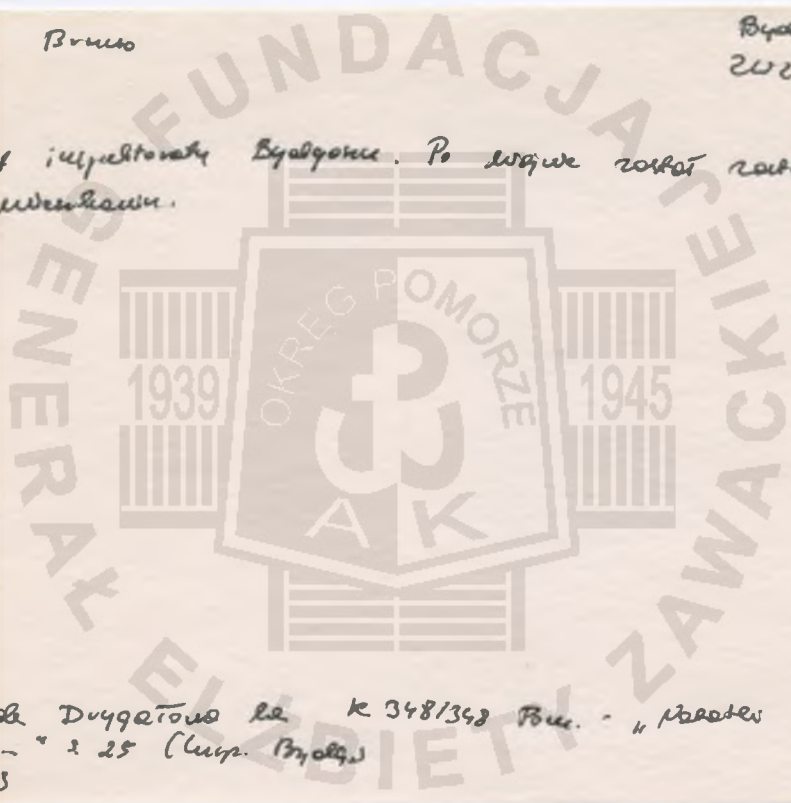 Bruno
Bydg
ZWZ
inspektoratu Bydgoszcz. Po wojnie został zast
mieszkaniu.
FUNDACJA GENERAŁ ELŻBIETY ZAWACKIEJ
OKRĘG POMORZE
1939
1945
AK
Drygałowa K 348/348 Pom. - „
" s 25 (Insp. Bydg.)